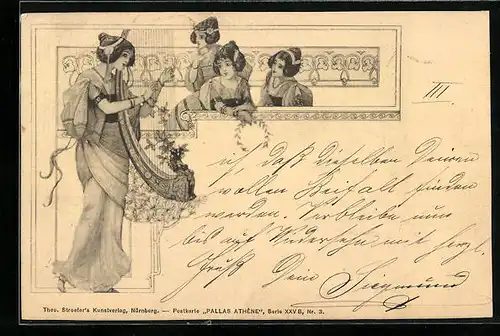 III
ich, daß dieselben Deinen
vollen Beifall finden
werden. Verbleibe nun
bis auf Wiedersehn mit herzl.
Gruß Dein Siegmund
Theo. Stroefer's Kunstverlag, Nürnberg. — Postkarte „PALLAS ATHÈNE", Serie XXVB, Nr. 3.